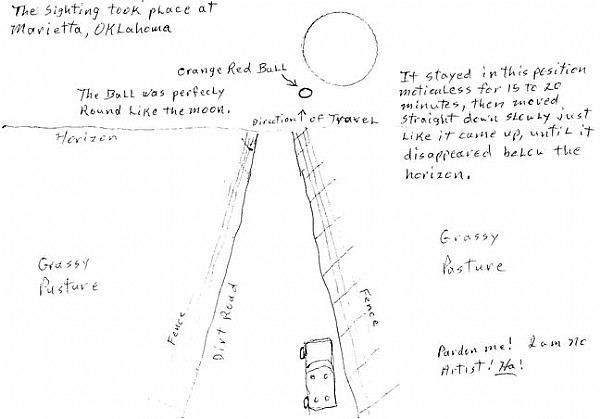 The Sighting took place at
Marietta, OKLahoma
Orange Red Ball
The Ball was perfecly
Round Like the moon.
Direction of Travel
Horizon
It stayed in this position
motionless for 15 to 20
minutes, then moved
straight down slowly just
Like it came up, until it
disappeared below the
horizon.
Grassy
Pasture
Grassy
Pasture
Fence
Dirt Road
Fence
Pardon me! I am no
Artist! Ha!